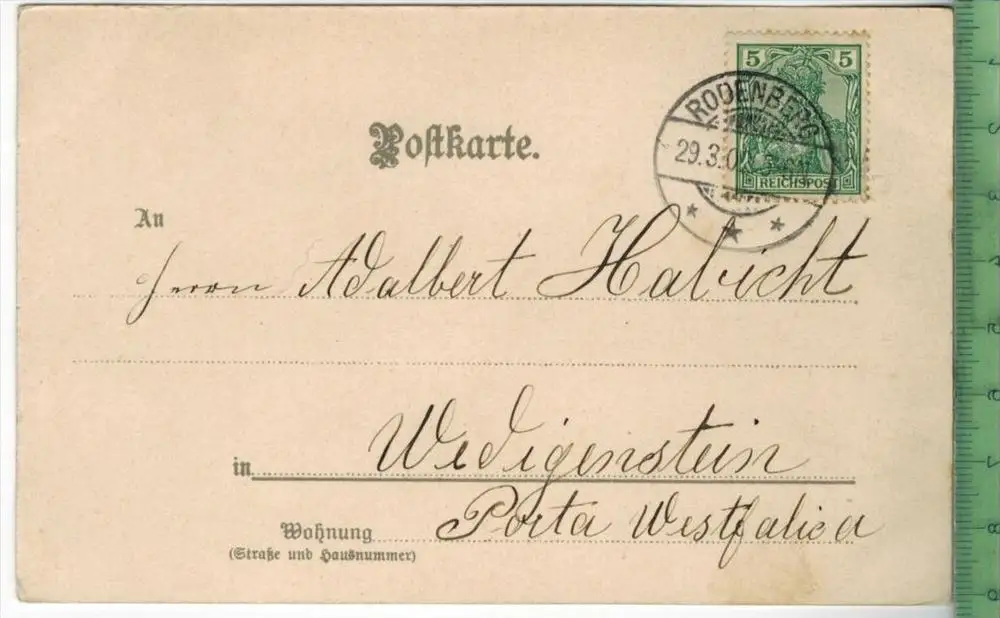 5 5
RODENBERG
29.3.0
REICHSPOST
Postkarte.
An
Herrn Adalbert Habicht
Wedigenstein
in
Porta Westfalica
Wohnung
(Straße und Hausnummer)